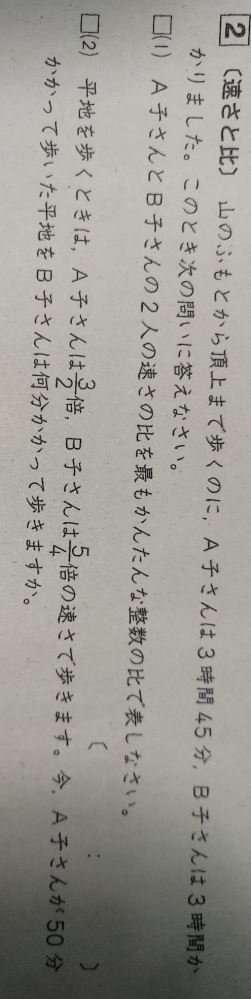 2 〔速さと比〕 山のふもとから頂上まで歩くのに,A子さんは3時間45分,B子さんは3時間か
かりました。このとき次の問いに答えなさい。
□(1) A子さんとB子さんの2人の速さの比を最もかんたんな整数の比で表しなさい。
( : )
□(2) 平地を歩くときは,A子さんは3/2倍,B子さんは5/4倍の速さで歩きます。今,A子さんが50分
かかって歩いた平地をB子さんは何分かかって歩きますか。